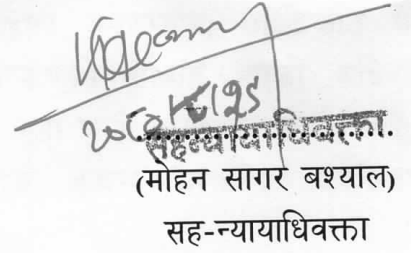 सहन्यायाधिवक्ता
(मोहन सागर बश्याल)
सह-न्यायाधिवक्ता